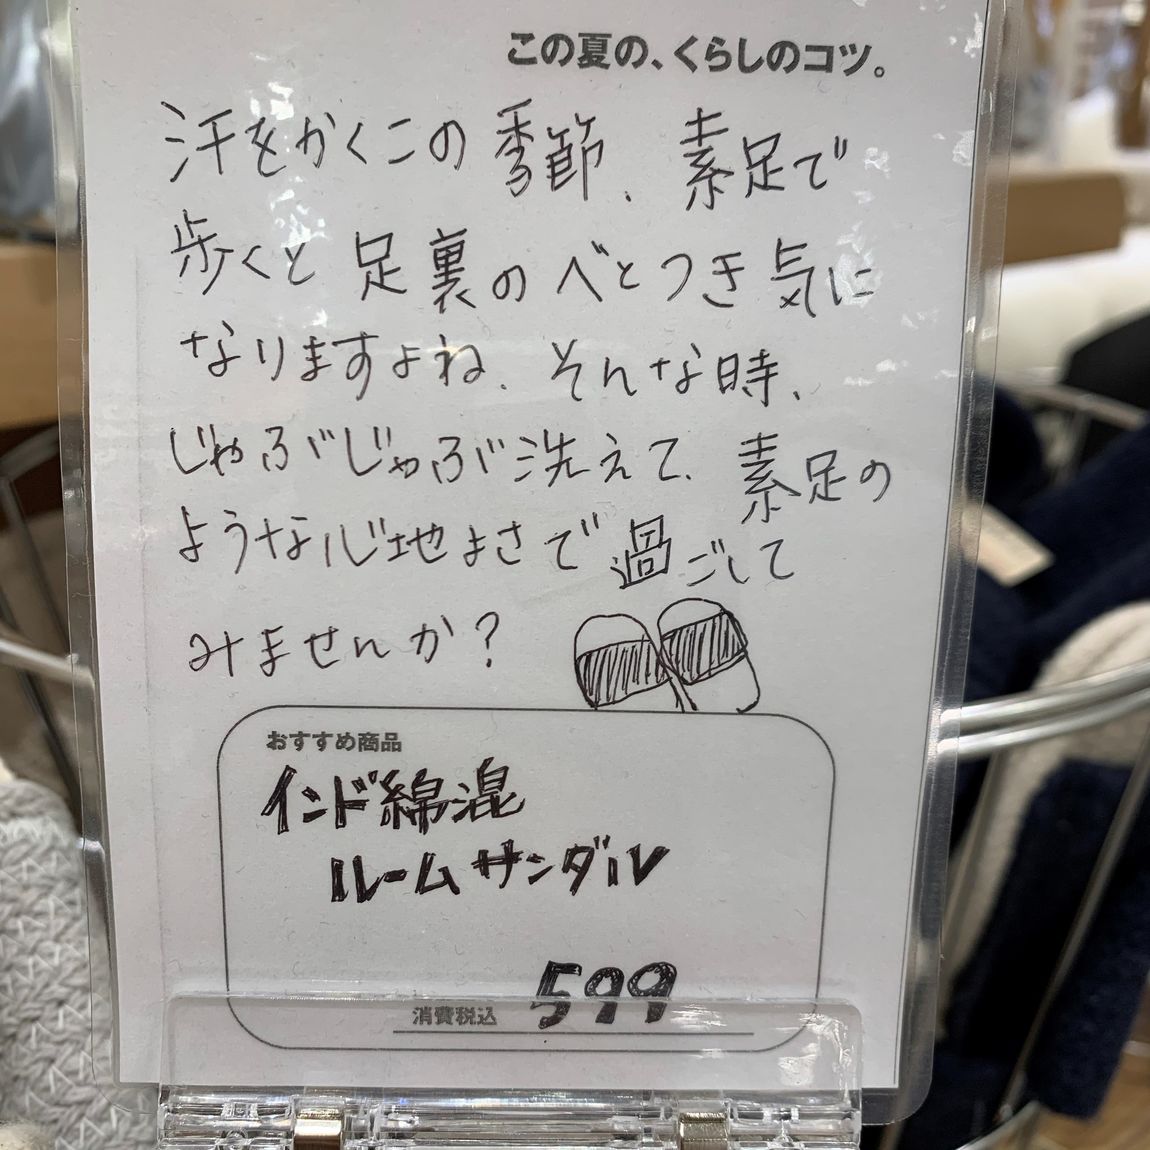 この夏の、くらしのコツ。
汗をかくこの季節、素足で
歩くと足裏のべとつき気に
なりますよね、そんな時、
じゃぶじゃぶ洗えて、素足の
ような心地よさで過ごして
みませんか？
おすすめ商品
インド綿混
ルームサンダル
消費税込 599